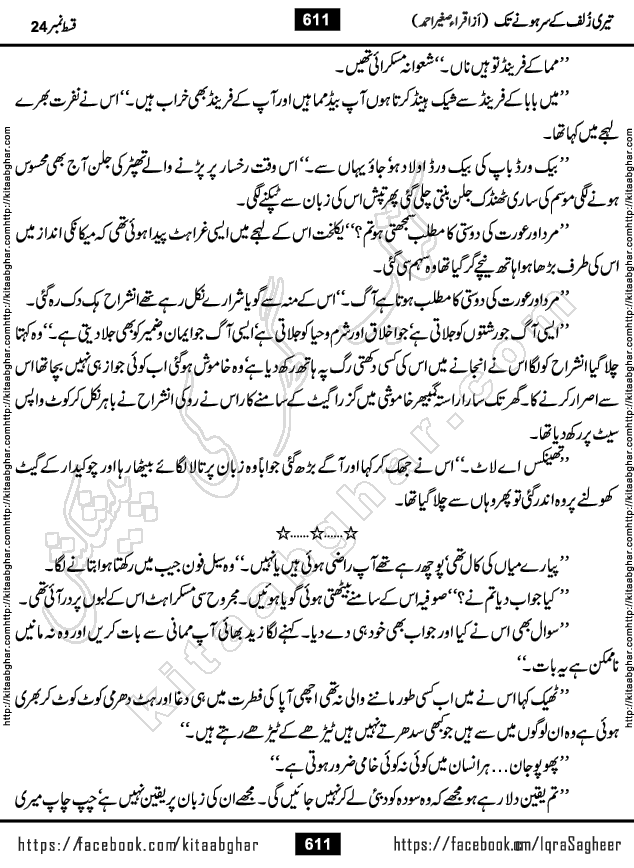 تیری زُلف کے سر ہونے تک (از اقراء صغیر احمد)
611
قسط نمبر 24
’’مما کے فرینڈ تو ہیں ناں۔‘‘ شعوانہ مسکرائی تھیں۔
’’میں بابا کے فرینڈ سے شیک ہینڈ کرتا ہوں آپ بیڈ مما ہیں اور آپ کے فرینڈ بھی خراب ہیں۔‘‘ اس نے نفرت بھرے
لہجے میں کہا تھا۔
’’بیک ورڈ باپ کی بیک ورڈ اولاد ہو‘ جاؤ یہاں سے۔‘‘ اس وقت رخسار پر پڑنے والے تھپڑ کی جلن آج بھی محسوس
ہونے لگی موسم کی ساری ٹھنڈک جلن بنتی چلی گئی پھر تپش اس کی زبان سے ٹپکنے لگی۔
’’مرد اور عورت کی دوستی کا مطلب سمجھتی ہو تم؟‘‘ یکلخت اس کے لہجے میں ایسی غراہٹ پیدا ہوئی تھی کہ میکانکی انداز میں
اس کی طرف بڑھا ہوا ہاتھ نیچے گر گیا تھا وہ سہم سی گئی۔
’’مرد اور عورت کی دوستی کا مطلب ہوتا ہے آگ۔‘‘ اس کے منہ سے گویا شرارے نکل رہے تھے انشراح ہک دک رہ گئی۔
’’ایسی آگ جو رشتوں کو جلاتی ہے‘ جو اخلاق اور شرم و حیا کو جلاتی ہے‘ ایسی آگ جو ایمان و ضمیر کو بھی جلا دیتی ہے۔‘‘ وہ کہتا
چلا گیا انشراح کو لگا اس نے انجانے میں اس کی کسی دکھتی رگ پہ ہاتھ رکھ دیا ہے‘ وہ خاموش ہو گئی اب کوئی جواز ہی نہیں بچا تھا اس
سے اصرار کرنے کا۔ گھر تک سارا راستہ گمبھیر خاموشی میں گزرا گیٹ کے سامنے کار اس نے روکی انشراح نے باہر نکل کر کوٹ واپس
سیٹ پر رکھ دیا تھا۔
’’تھینکس اے لاٹ۔‘‘ اس نے جھک کر کہا اور آگے بڑھ گئی جواباً وہ زبان پر تالا لگائے بیٹھا رہا اور چوکیدار کے گیٹ
کھولنے پر وہ اندر گئی تو پھر وہاں سے چلا گیا تھا۔
☆......☆......☆
’’پیارے میاں کی کال تھی‘ پوچھ رہے تھے آپ راضی ہوئی ہیں یا نہیں۔‘‘ وہ سیل فون جیب میں رکھتا ہوا بتانے لگا۔
’’کیا جواب دیا تم نے؟‘‘ صوفیہ اس کے سامنے بیٹھتی ہوئی گویا ہوئیں۔ مجروح سی مسکراہٹ اس کے لبوں پر در آئی تھی۔
’’سوال بھی اس نے کیا اور جواب بھی خود ہی دے دیا۔ کہنے لگا زید بھائی آپ ممانی سے بات کریں اور وہ نہ مانیں
ناممکن ہے یہ بات۔‘‘
’’ٹھیک کہا اس نے میں اب کسی طور ماننے والی نہ تھی اچھی آپا کی فطرت میں ہی دغا اور ہٹ دھرمی کوٹ کوٹ کر بھری
ہوئی ہے وہ ان لوگوں میں سے ہیں جو کبھی سدھرتے نہیں ہیں ٹیڑھے کے ٹیڑھے رہتے ہیں۔‘‘
’’پھوپو جان... ہر انسان میں کوئی نہ کوئی خامی ضرور ہوتی ہے۔‘‘
’’تم یقین دلا رہے ہو مجھے کہ وہ سودہ کو دبئی لے کر نہیں جائیں گی۔ مجھے ان کی زبان پر یقین نہیں ہے‘ چپ چاپ میری
https://facebook.com/kitaabghar
611
https://facebook.com/IqraSagheer
http://kitaabghar.com
http://kitaabghar.com
کتاب گھر کی پیشکش
kitaabghar.com